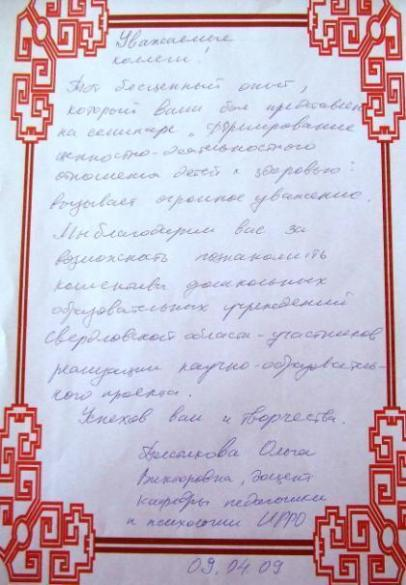 Уважаемые
коллеги!
Тот бесценный опыт,
который Вами был представлен
на семинаре „Формирование
ценностно-деятельностного
отношения детей к здоровью"
вызывает огромное уважение.
Мы благодарим вас за
возможность познакомить
коллективы дошкольных
образовательных учреждений
Свердловской области - участников
реализации научно-образователь-
ного проекта.
Успехов вам и творчества.
Ольга
Викторовна, доцент
кафедры педагогики
и психологии ИРРО
09.04.09